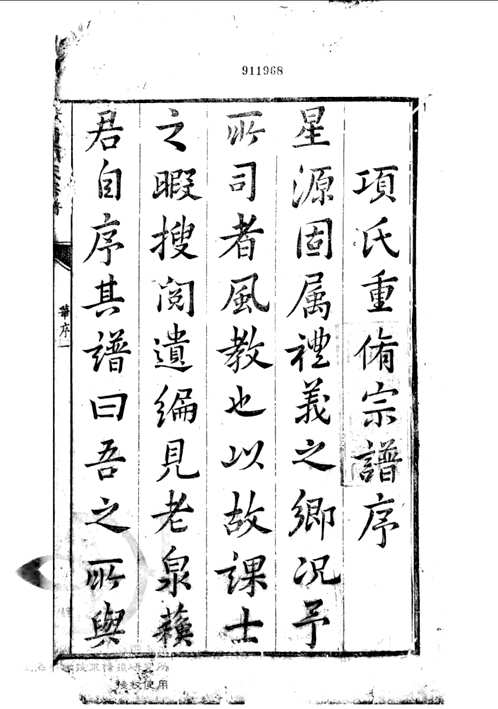 911968
項氏重脩宗譜序
星源固属禮義之鄉况予
所司者風教也以故課士
之暇搜閲遺編見老泉蘓
君自序其譜曰吾之所與
華序一
授权使用